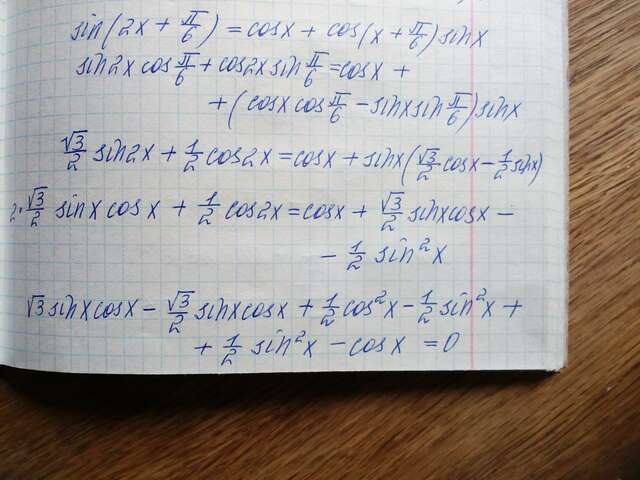 sin(2x + π/6) = cosx + cos(x + π/6) sinx
sin2x cos π/6 + cos2x sin π/6 = cosx +
+ (cosx cos π/6 - sinx sin π/6) sinx
√3/2 sin2x + 1/2 cos2x = cosx + sinx(√3/2 cosx - 1/2 sinx)
2·√3/2 sinx cosx + 1/2 cos2x = cosx + √3/2 sinxcosx -
- 1/2 sin²x
√3 sinxcosx - √3/2 sinxcosx + 1/2 cos²x - 1/2 sin²x +
+ 1/2 sin²x - cosx = 0